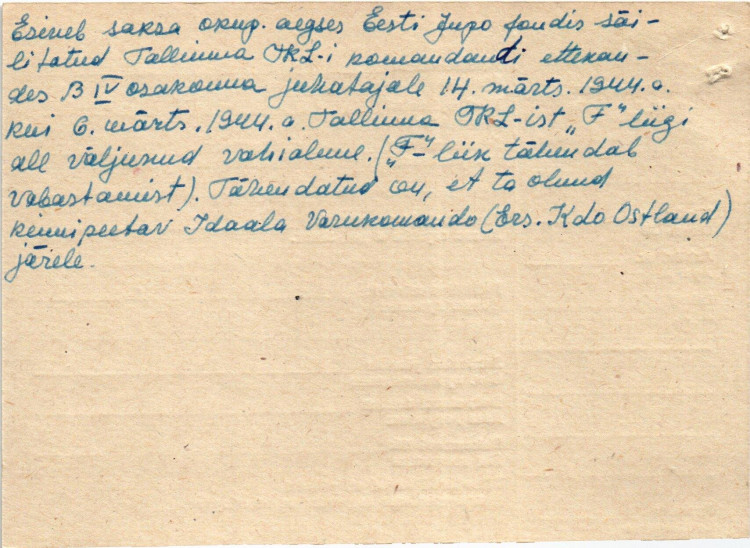 Esineb saksa okup. aegses Eesti Jupo fondis säi-
litatud Tallinna TKL-i komandandi ettekan-
des B IV osakonna juhatajale 14. märts. 1944. a.
kui 6. märts. 1944. a. Tallinna TKL-ist „F" liigi
all väljunud vahialune. („F"-liik tähendab
vabastamist). Tähendatud on, et ta olnud
kinnipeetav Idaala Varukomando (Ers. Kdo Ostland)
järele.